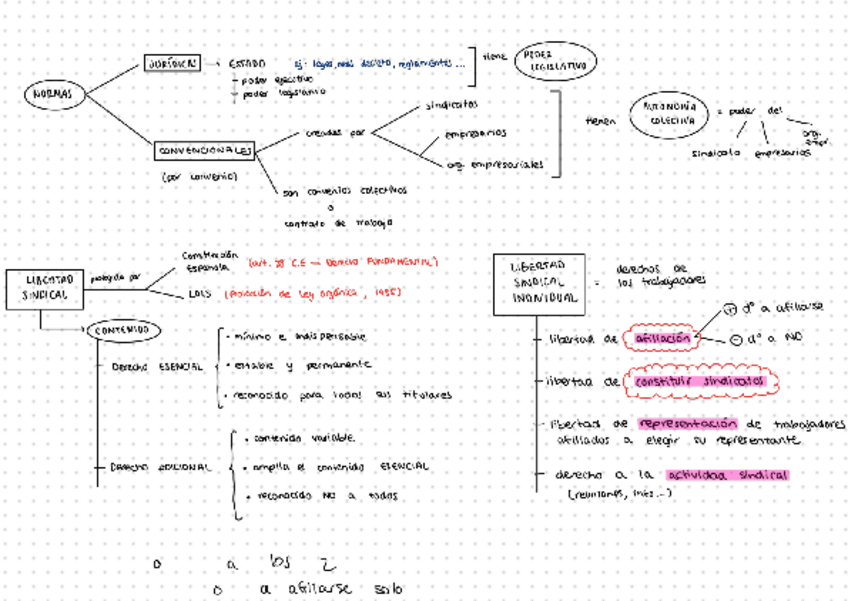 NORMAS
JURÍDICAS → ESTADO
ej: leyes, reglamentos...
tiene PODER LEGISLATIVO
poder ejecutivo
poder legislativo
CONVENCIONALES
(por convenio)
creadas por
sindicatos
empresarios
org. empresariales
tienen AUTONOMÍA COLECTIVA = poder del
sindicato empresarios org. empr.
son convenios colectivos
o
contrato de trabajo
LIBERTAD SINDICAL
protegida por
Constitución Española (art. 28 C.E — Derecho FUNDAMENTAL)
LOLS (de Ley orgánica, 1985)
CONTENIDO
Derecho ESENCIAL
· mínimo e indispensable
· estable y permanente
· reconocido para todos sus titulares
Derecho ADICIONAL
· contenido variable
· amplía el contenido ESENCIAL
· reconocido NO a todos
LIBERTAD SINDICAL INDIVIDUAL = derechos de los trabajadores
libertad de afiliación
+ dº a afiliarse
- dº a NO
libertad de constituir sindicatos
libertad de representación de trabajadores
afiliados a elegir su representante
derecho a la actividad sindical
(reuniones, ...)
o a los 2
o a afiliarse solo